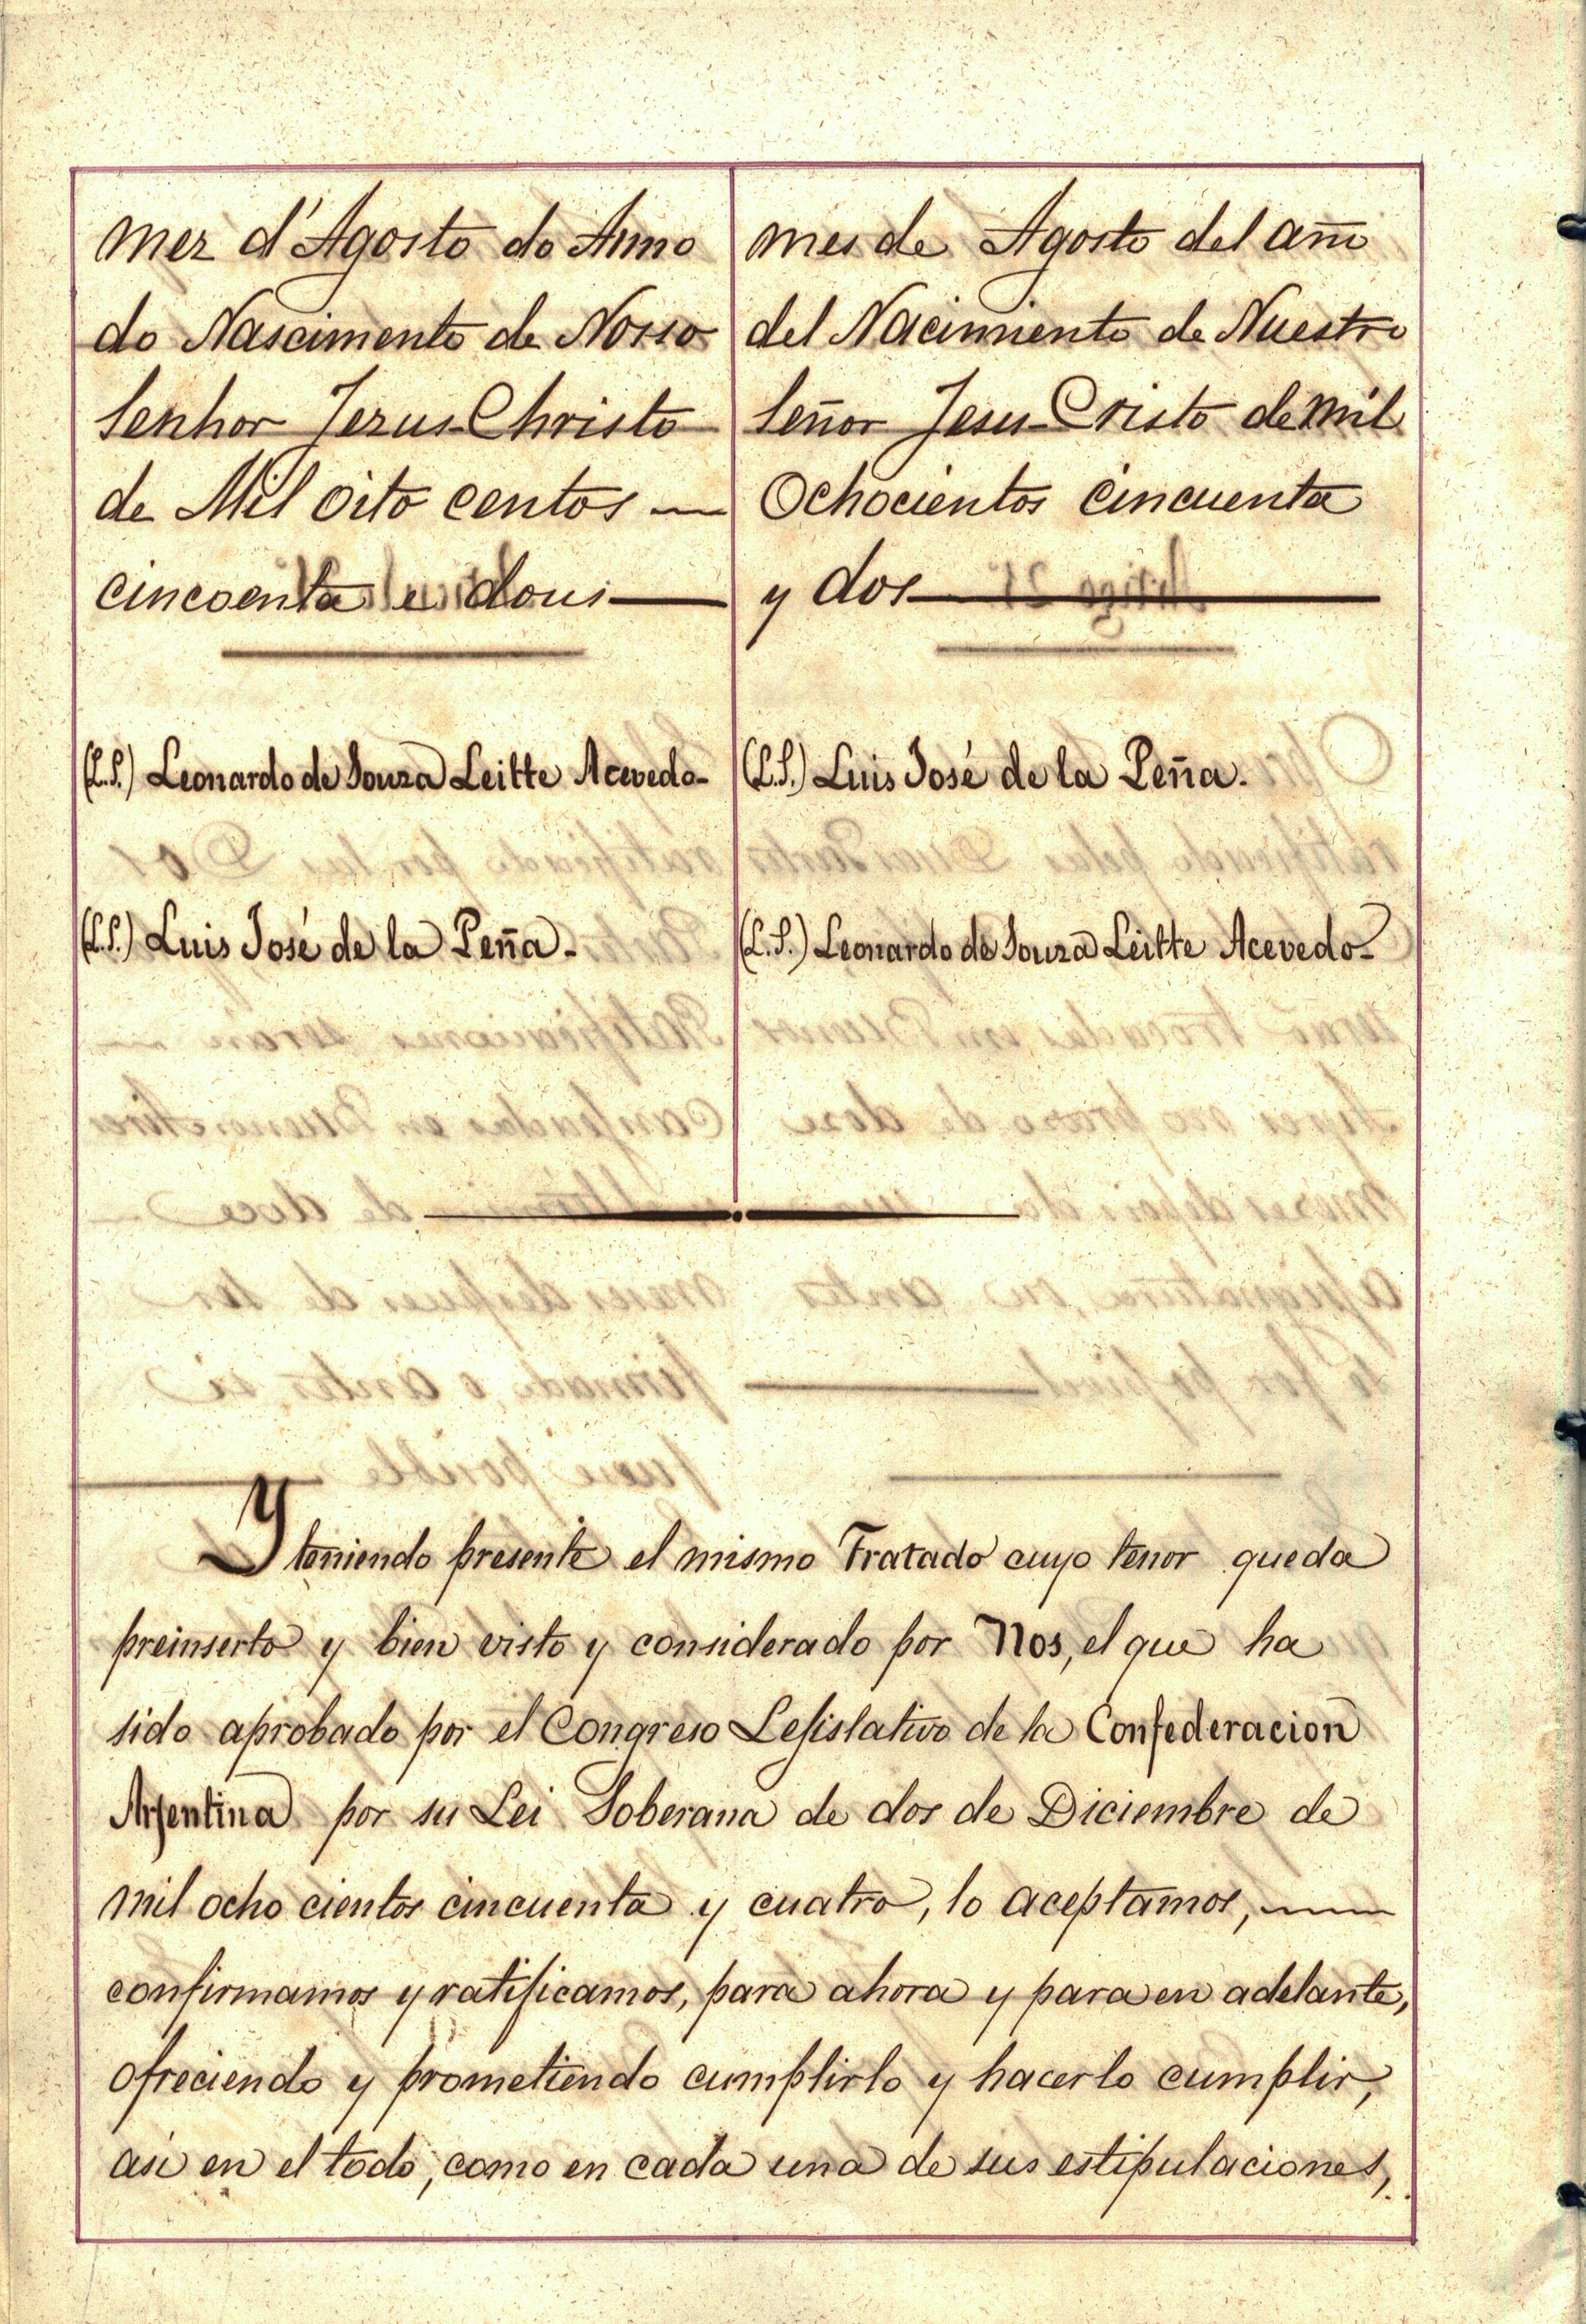 mez d'Agosto do Anno
do Nascimento de Nosso
Senhor Jezus-Christo
de Mil oito centos —
cincoenta e dous —
(L.S.) Leonardo de Souza Leitte Acevedo-
(L.S.) Luis José de la Peña.-
mes de Agosto del año
del Nacimiento de Nuestro
Señor Jesu-Cristo de mil
Ochocientos cincuenta
y dos —
(L.S.) Luis José de la Peña.-
(L.S.) Leonardo de Souza Leitte Acevedo-
Y teniendo presente el mismo Tratado cuyo tenor queda
preinserto y bien visto y considerado por Nos, el que ha
sido aprobado por el Congreso Lejislativo de la Confederacion
Arjentina por su Lei Soberana de dos de Diciembre de
mil ocho cientos cincuenta y cuatro, lo aceptamos, —
confirmamos y ratificamos, para ahora y para en adelante,
ofreciendo y prometiendo cumplirlo y hacerlo cumplir,
asi en el todo, como en cada una de sus estipulaciones,